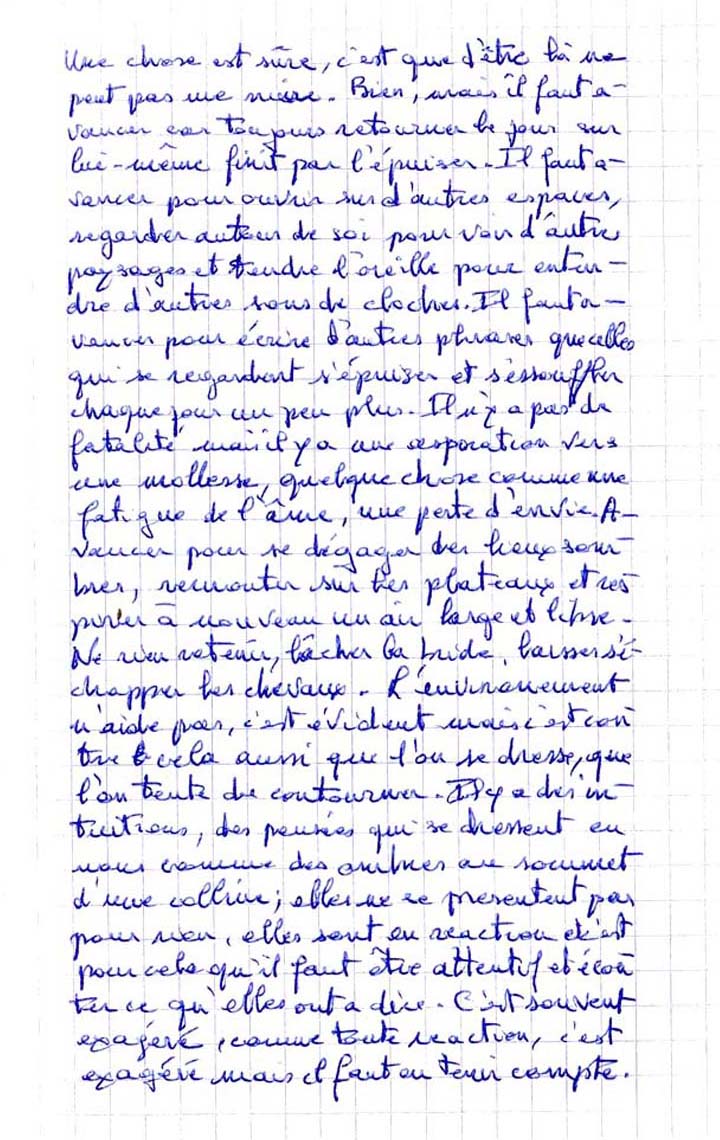 Une chose est sûre, c'est que d'être là ne
peut pas me nuire. Bien, mais il faut a-
vancer car toujours retourner le jour sur
lui-même finit par l'épuiser. Il faut a-
vancer pour ouvrir sur d'autres espaces,
regarder autour de soi pour voir d'autres
paysages et tendre l'oreille pour enten-
dre d'autres sons de cloches. Il faut a-
vancer pour écrire d'autres phrases que celles
qui se regardent s'épuiser et s'essouffler
chaque jour un peu plus. Il n'y a pas de
fatalité mais il y a une aspiration vers
une mollesse, quelque chose comme une
fatigue de l'âme, une perte d'envie. A-
vancer pour se dégager des lieux som-
bres, remonter sur les plateaux et res
pirer à nouveau un air large et libre.
Ne rien retenir, lâcher la bride, laisser s'é-
chapper les chevaux. L'environnement
n'aide pas, c'est évident mais c'est con
tre cela aussi que l'on se dresse, que
l'on tente de contourner. Il y a des in-
tuitions, des pensées qui se dressent en
nous comme des ombres au sommet
d'une colline ; elles ne se présentent pas
pour rien, elles sont en réaction et c'est
pour cela qu'il faut être attentif et écou
ter ce qu'elles ont a dire. C'est souvent
exagéré, comme toute réaction, c'est
exagéré mais il faut en tenir compte.